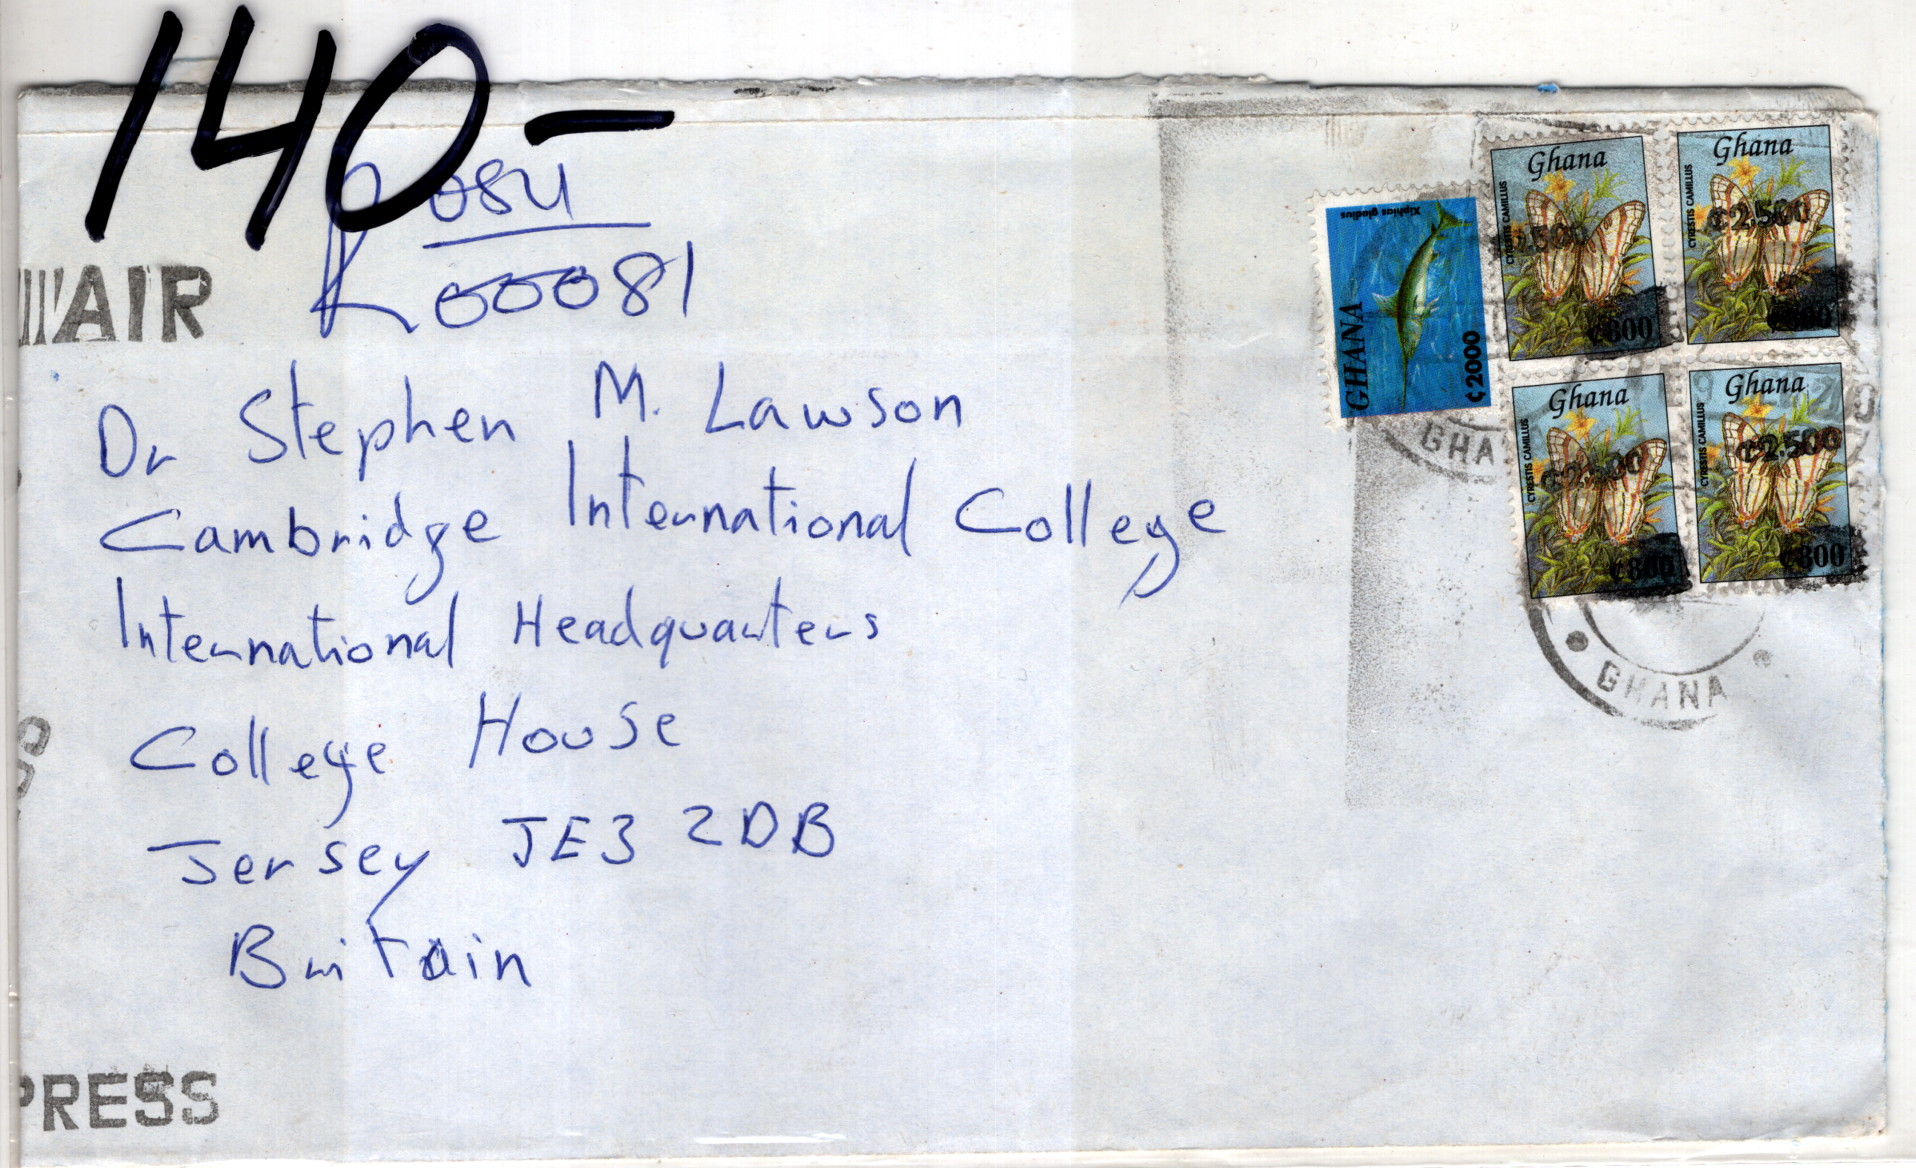 140-
R OSU
00081
AIR
Dr Stephen M. Lawson
Cambridge International College
International Headquarters
College House
Jersey JE3 2DB
Britain
PRESS
Xiphias gladius
GHANA
¢2000
GHA
Ghana
CYRESTIS CAMILLUS
2.500
¢800
Ghana
CYRESTIS CAMILLUS
¢2.500
800
Ghana
CYRESTIS CAMILLUS
¢2.500
¢800
Ghana
CYRESTIS CAMILLUS
¢2.500
¢800
GHANA